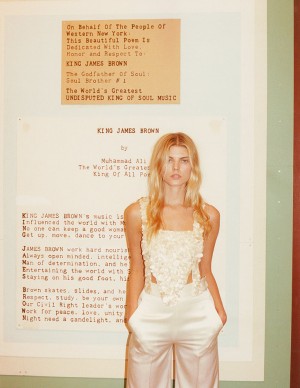 On Behalf Of The People Of
Western New York:
This Beautiful Poem Is
Dedicated With Love,
Honor and Respect To:
KING JAMES BROWN
The Godfather Of Soul:
Soul Brother #1
The World's Greatest
UNDISPUTED KING OF SOUL MUSIC
KING JAMES BROWN
by
Muhammad Ali
The World's Greatest
King Of All
KING JAMES BROWN'S music is
Influenced the world with
No one can keep a good
Get up, move, dance to your
JAMES BROWN work hard
Always open minded,
Man of determination, and he
Entertaining the world with
Staying on his good foot,
Brown skates, slides, and
Respect, study, be your own
Our Civil Right leader's
Work for peace, love, unity
Night need a candlelight, and